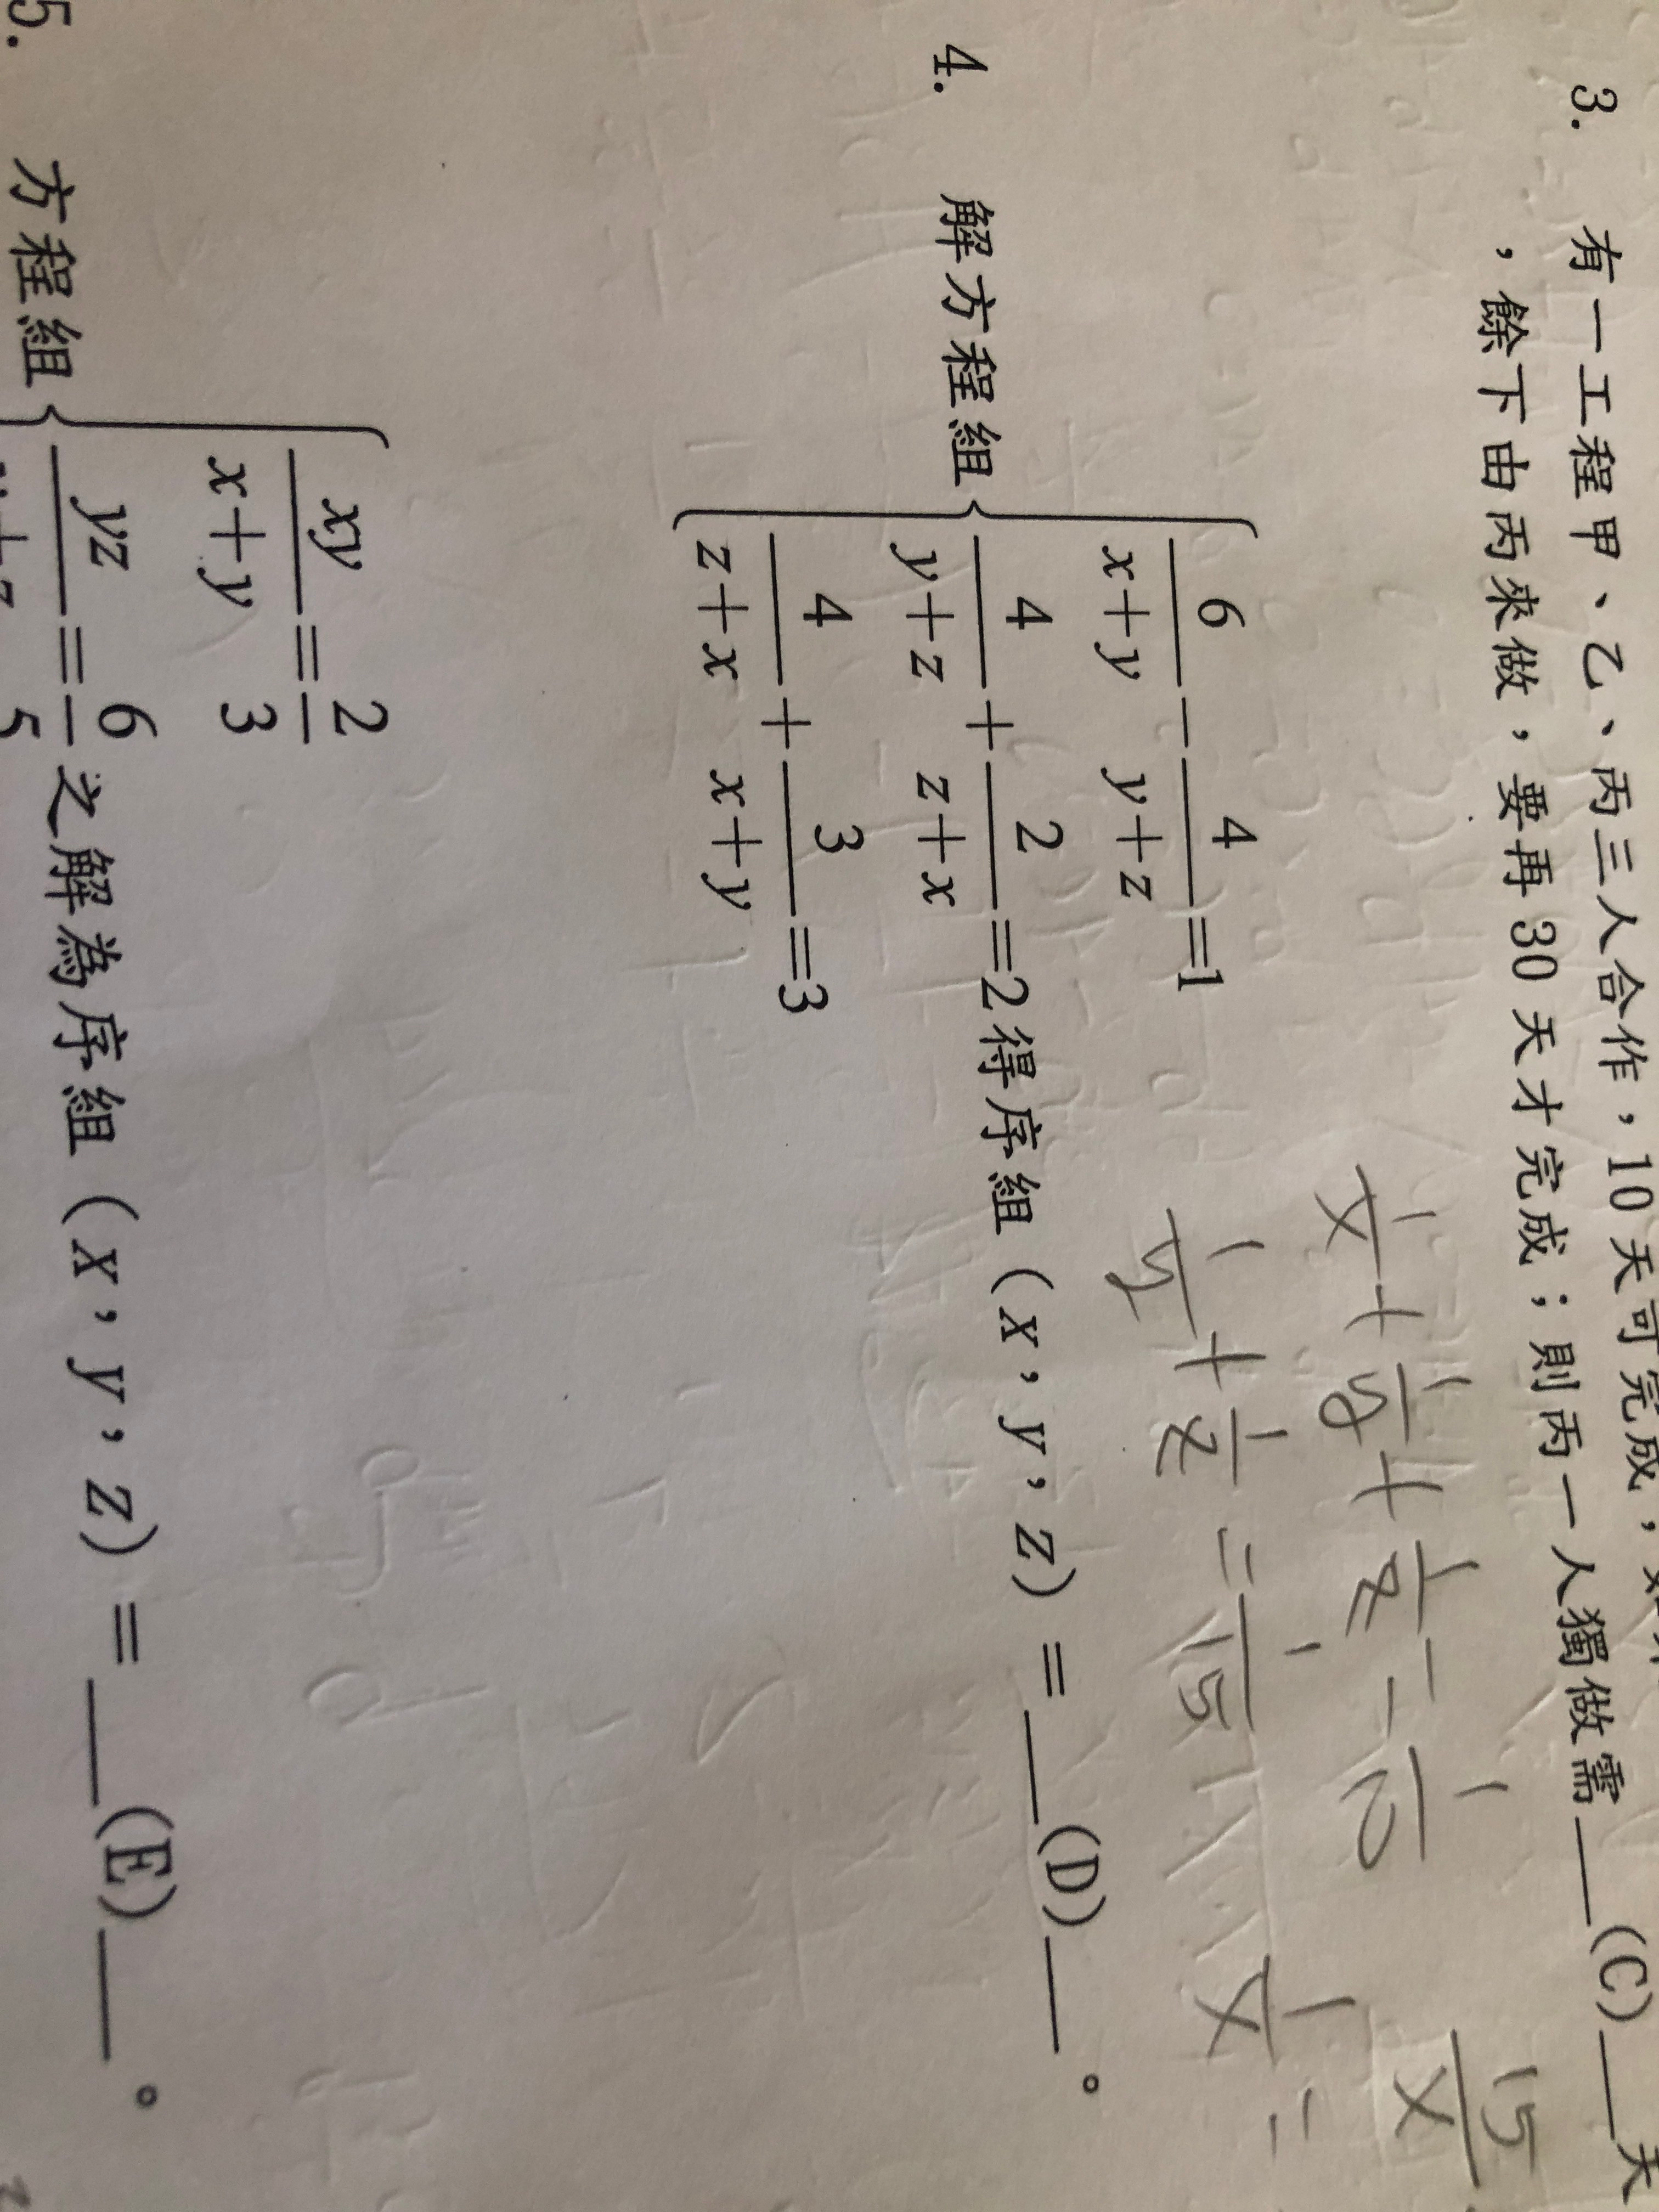 3. 有一工程甲、乙、丙三人合作，10天可完成，
，餘下由丙來做，要再30天才完成；則丙一人獨做需___(C)___天
1/x + 1/y + 1/z = 1/10
15/x
1/y + 1/z = 1/15
1/x =
4. 解方程組
6/(x+y) - 4/(y+z) = 1
4/(y+z) + 2/(z+x) = 2 得序組 (x，y，z) = ___(D)___。
4/(z+x) + 3/(x+y) = 3
5. 方程組
xy/(x+y) = 2/3
yz/(y+z) = 6/5 之解為序組 (x，y，z) = ___(E)___。